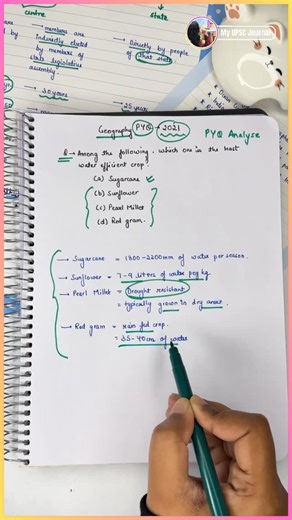 My UPSC Journal
centre
state
members are
indirectly elected
by members of
state legislative
assembly.
Directly by people
of that state
30 years
25 years
Geography PYQ → 2021
PYQ Analyse
Q → Among the following, which one is the least
water efficient crop.
(a) Sugarcane ✓
(b) Sunflower
(c) Pearl Millet
(d) Red gram.
→ Sugarcane = 1800-2200mm of water per season.
→ Sunflower = 7-9 liters of water per kg
→ Pearl Millet = Drought resistant
= typically grown in dry areas.
→ Red gram = rain fed crop.
= 35-40cm of water